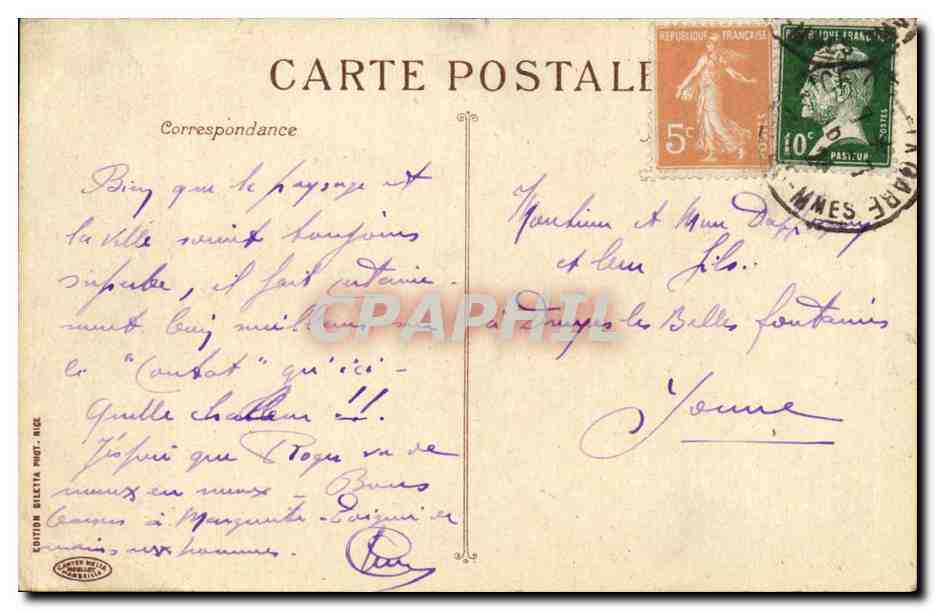 CARTE POSTALE
Correspondance
REPUBLIQUE FRANÇAISE
5c
POSTES
REPUBLIQUE FRANÇAISE
10c
POSTES
PASTEUR
GARE
NNES
Bien que le paysage et
la ville soient toujours
superbe, il fait certaine-
ment bien meilleur sur
le "Contat" qu'ici -
Quelle chaleur !!!.
J'espère que Roger va de
mieux en mieux - Bons
baisers à Marguerite - Poignées de
mains aux hommes.
Monsieur et Mme
et leur fils.
à Druyes les Belles fontaines
Yonne
CPAPHIL
EDITION GILETTA PHOT. NICE
CARTES NELIA
MOULLOT
MARSEILLE